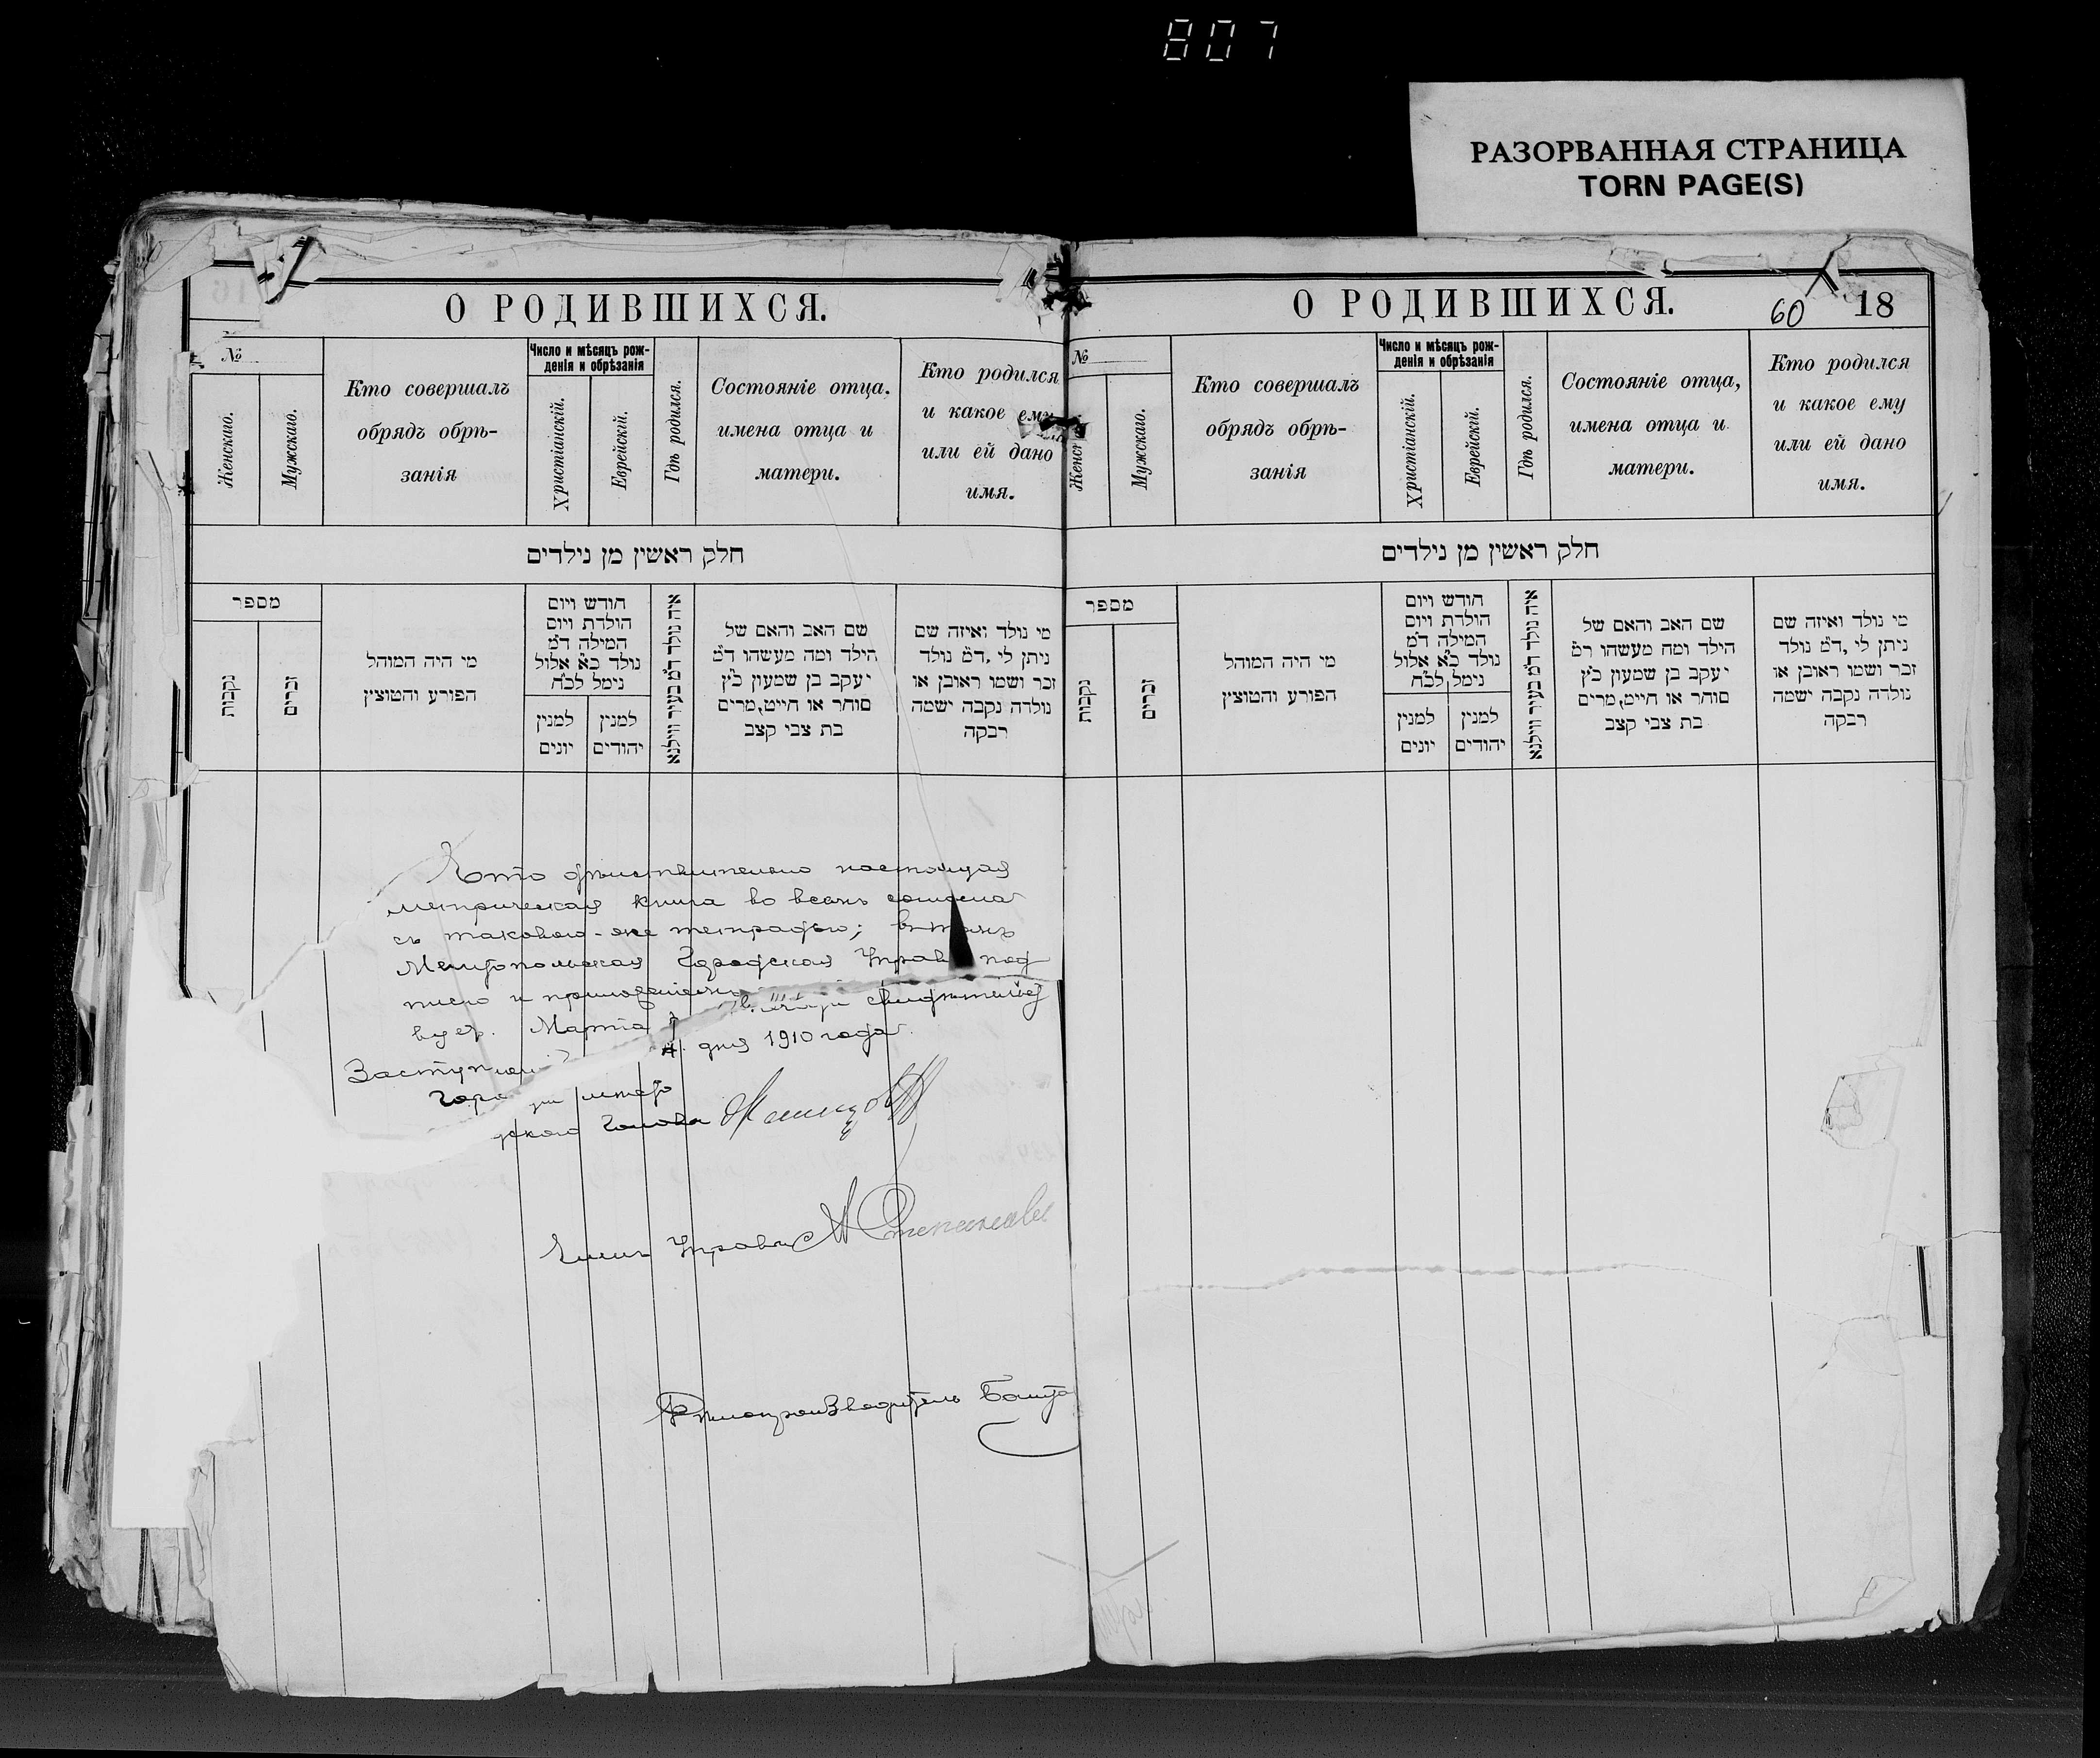 807
РАЗОРВАННАЯ СТРАНИЦА
TORN PAGE(S)
О РОДИВШИХСЯ.
№
Женскаго.
Мужскаго.
Кто совершалъ
обрядъ обрѣ-
занія
Число и мѣсяцъ рож-
денія и обрѣзанія
Христіанскій.
Еврейскій.
Гдѣ родился.
Состояніе отца.
имена отца и
матери.
Кто родился
и какое ему
или ей дано
имя.
חלק ראשין מן נילדים
מספר
נקבות
זכרים
מי היה המוהל
הפורע והמוצץ
חודש ויום
הולדת ויום
המילה ד״מ
נולד כ״א אלול
נימל לכ״ח
למנין
יונים
למנין
יהודים
איה נולד ד״מ בעיר ווילנא
שם האב והאם של
הילד ומה מעשהו ד״מ
יעקב בן שמעון כ״ץ
סוחר או חייט,מרים
בת צבי קצב
מי נולד ואיזה שם
ניתן לי ,ד״מ נולד
זכר ושמו ראובן או
נולדה נקבה ישמה
רבקה
Что дѣйствительно настоящая
метрическая книга во всемъ сходна
съ таковою-же тетрадью; въ томъ
Мелитопольская Городская Управ под
писью и приложеніемъ свидѣтельс
вуетъ. Марта дня 1910 года
Заступающ
Горо мѣсто
дского Головы
Членъ Управы А Степаненко
Дѣлопроизводитель
О РОДИВШИХСЯ.
60 18
№
Женск
Мужскаго.
Кто совершалъ
обрядъ обрѣ-
занія
Число и мѣсяцъ рож-
денія и обрѣзанія
Христіанскій.
Еврейскій.
Гдѣ родился.
Состояніе отца,
имена отца и
матери.
Кто родился
и какое ему
или ей дано
имя.
חלק ראשין מן נילדים
מספר
נקבות
זכרים
מי היה המוהל
הפורע והמוצץ
חודש ויום
הולדת ויום
המילה ד״מ
נולד כ״א אלול
נימל לכ״ח
למנין
יונים
למנין
יהודים
איה נולד ד״מ בעיר ווילנא
שם האב והאם של
הילד ומה מעשהו ד״מ
יעקב בן שמעון כ״ץ
סוחר או חייט,מרים
בת צבי קצב
מי נולד ואיזה שם
ניתן לי ,ד״מ נולד
זכר ושמו ראובן או
נולדה נקבה ישמה
רבקה